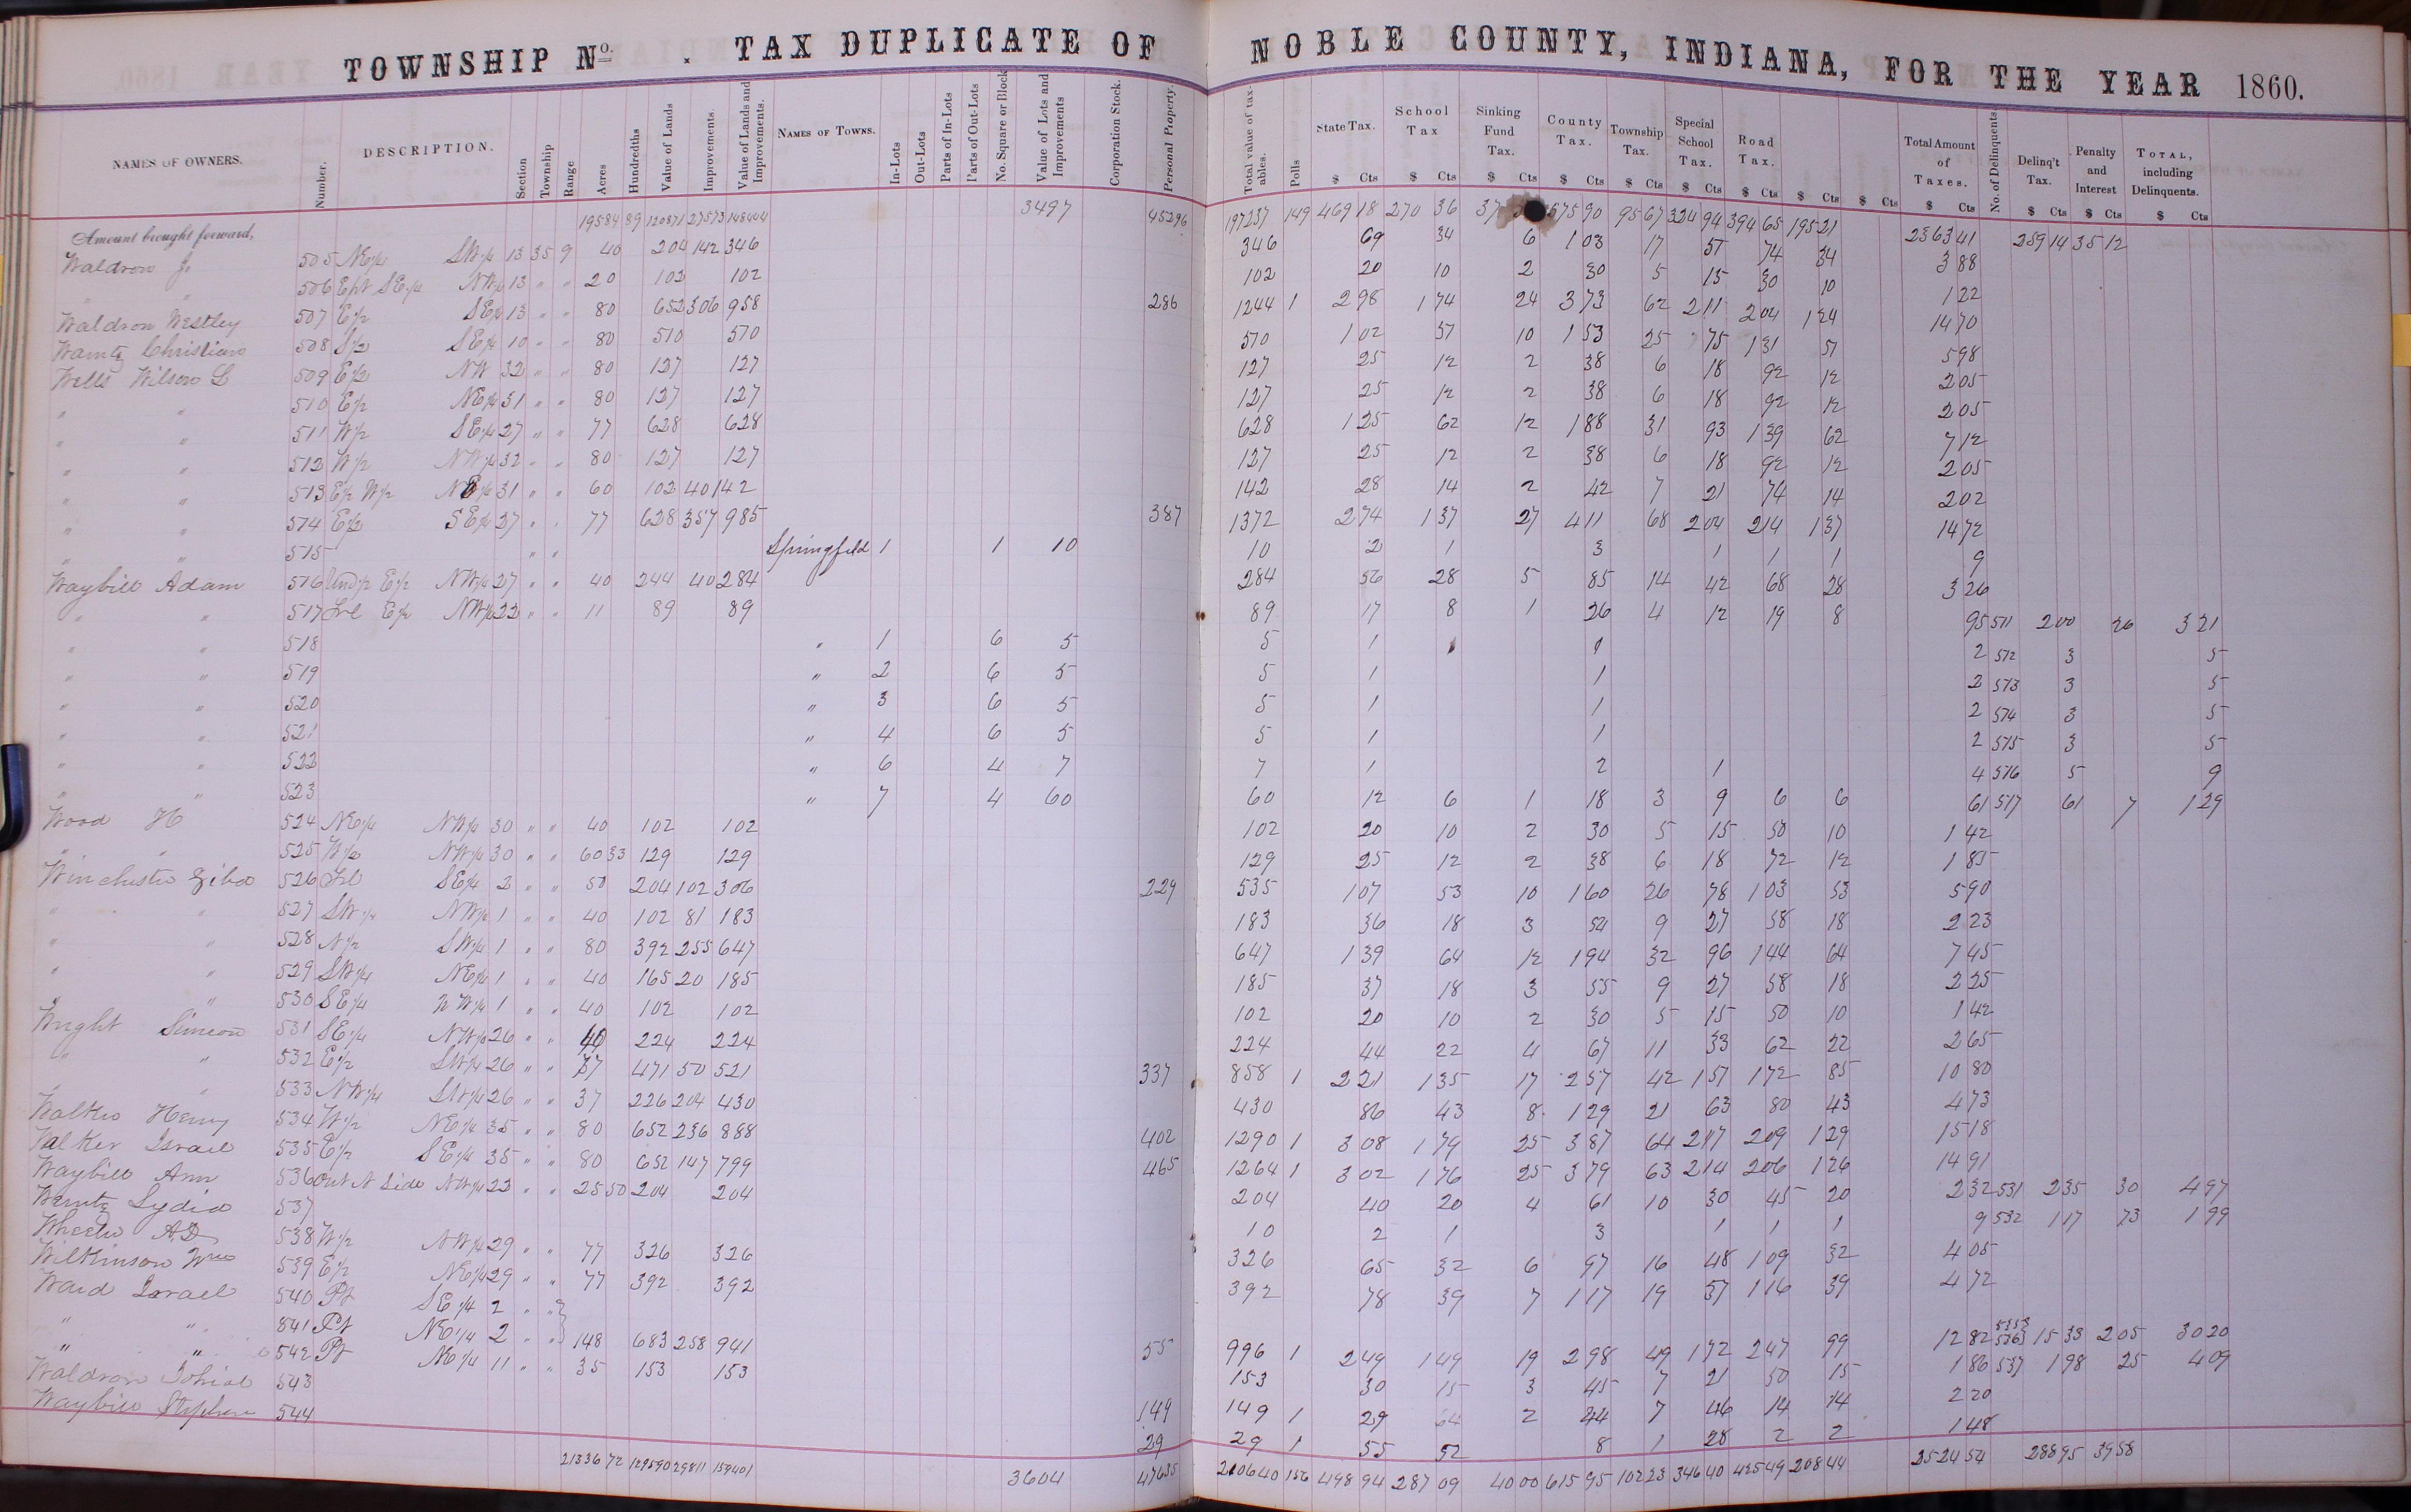 TOWNSHIP No. . TAX DUPLICATE OF NOBLE COUNTY, INDIANA, FOR THE YEAR 1860.
NAMES OF OWNERS. Number. DESCRIPTION. Section Township Range Acres Hundredths Value of Lands Improvements. Value of Lands and Improvements. NAMES OF TOWNS. In-Lots Out-Lots Parts of In-Lots Parts of Out-Lots No. Square or Block Value of Lots and Improvements Corporation Stock. Personal Property. Total value of taxables. Polls State Tax. School Tax Sinking Fund Tax. County Tax. Township Tax. Special School Tax. Road Tax. Total Amount of Taxes. No. of Delinquents Delinq't Tax. Penalty and Interest TOTAL, including Delinquents.
$ Cts $ Cts $ Cts $ Cts $ Cts $ Cts $ Cts $ Cts $ Cts $ Cts $ Cts $ Cts $ Cts
Amount brought forward, 19584 89 120871 27573 148404 3497 45296 197257 149 469 18 270 36 37 675 90 95 67 324 94 394 65 195 21 2363 41 259 14 35 12
Waldron J. 505 NE 1/4 SW 1/4 13 35 9 40 204 142 346 346 69 34 6 1 03 17 57 74 34 3 88
" " 506 SE 1/4 NW 1/4 13 " " 20 102 102 102 20 10 2 30 5 15 30 10 1 22
Waldron Westley 507 E 1/2 SE 1/4 13 " " 80 652 306 958 286 1244 1 2 98 1 74 24 3 73 62 2 11 2 04 1 24 14 70
Wamtz Christian 508 S 1/2 SE 1/4 10 " " 80 510 570 570 1 02 57 10 1 53 25 75 1 31 57 5 98
Wells Wilson L 509 E 1/2 NW 32 " " 80 127 127 127 25 12 2 38 6 18 92 12 2 05
" " 510 E 1/2 NE 1/4 31 " " 80 127 127 127 25 12 2 38 6 18 92 12 2 05
" " 511 W 1/2 SE 1/4 27 " " 77 628 628 628 1 25 62 12 1 88 31 93 1 39 62 7 12
" " 512 W 1/2 NW 1/4 32 " " 80 127 127 127 25 12 2 38 6 18 92 12 2 05
" " 513 E 1/2 W 1/2 NE 1/4 31 " " 60 102 40 142 142 28 14 2 42 7 21 74 14 2 02
" " 514 E 1/2 SE 1/4 27 " " 77 628 357 985 387 1372 2 74 1 37 27 4 11 68 2 04 2 14 1 37 14 72
" " 515 " " Springfield 1 1 10 10 2 1 3 1 1 1 9
Waybill Adam 516 Und 1/2 E 1/2 NW 1/4 27 " " 40 244 40 284 284 56 28 5 85 14 42 68 28 3 26
" " 517 E 1/2 NW 1/4 22 " " 11 89 89 89 17 8 1 26 4 12 19 8 95 511 2 00 26 3 21
" " 518 " 1 6 5 5 1 1 2 512 3 5
" " 519 " 2 6 5 5 1 1 2 513 3 5
" " 520 " 3 6 5 5 1 1 2 514 3 5
" " 521 " 4 6 5 5 1 1 2 515 3 5
" " 522 " 6 4 7 7 1 2 1 4 516 5 9
" " 523 " 7 4 60 60 12 6 1 18 3 9 6 6 61 517 61 7 1 29
Wood H 524 NE 1/4 NW 1/4 30 " " 40 102 102 102 20 10 2 30 5 15 50 10 1 42
" " 525 W 1/2 NW 1/4 30 " " 60 33 129 129 129 25 12 2 38 6 18 72 12 1 85
Winchester Ziba 526 SE 1/4 2 " " 50 204 102 306 229 535 1 07 53 10 1 60 26 78 1 03 53 5 90
" " 527 SW 1/4 NW 1/4 1 " " 40 102 81 183 183 36 18 3 54 9 27 58 18 2 23
" " 528 N 1/2 SW 1/4 1 " " 80 392 255 647 647 1 39 64 12 1 94 32 96 1 44 64 7 45
" " 529 SW 1/4 NE 1/4 1 " " 40 165 20 185 185 37 18 3 55 9 27 58 18 2 25
" " 530 SE 1/4 NW 1/4 1 " " 40 102 102 102 20 10 2 30 5 15 50 10 1 42
Wright Simeon 531 SE 1/4 NW 1/4 26 " " 40 224 224 224 44 22 4 67 11 33 62 22 2 65
" " 532 E 1/2 SW 1/4 26 " " 37 471 50 521 337 858 1 2 21 1 35 17 2 57 42 1 57 1 72 85 10 80
" " 533 NW 1/4 SW 1/4 26 " " 37 226 204 430 430 86 43 8 1 29 21 63 80 43 4 73
Walker Henry 534 W 1/2 NE 1/4 35 " " 80 652 236 888 402 1290 1 3 08 1 79 25 3 87 64 2 17 2 09 1 29 15 18
Walker Israel 535 E 1/2 SE 1/4 35 " " 80 652 147 799 465 1264 1 3 02 1 76 25 3 79 63 2 14 2 06 1 26 14 91
Waybill Ann 536 N Side NW 1/4 22 " " 25 50 204 204 204 40 20 4 61 10 30 45 20 2 32 531 2 35 30 4 97
Wamtz Lydia 537 10 2 1 3 1 1 1 9 532 1 17 73 1 99
Wheeler A.D 538 W 1/2 NW 1/4 29 " " 77 326 326 326 65 32 6 97 16 48 1 09 32 4 05
Wilkinson Wm 539 E 1/2 NE 1/4 29 " " 77 392 392 392 78 39 7 1 17 19 57 1 16 39 4 72
Ward Israel 540 Pt SE 1/4 2 " "
" " 541 Pt NE 1/4 2 " " 148 683 258 941 55 996 1 2 49 1 49 19 2 98 49 1 72 2 47 99 12 82 15 33 2 05 30 20
" " 542 Pt NE 1/4 11 " " 35 153 153 153 30 15 3 45 7 21 50 15 1 86 537 1 98 25 4 09
Waldron 543 149 149 1 29 64 2 44 7 46 14 14 2 20
Waybill Stephen 544 29 29 1 55 52 8 1 28 2 2 1 48
21336 72 129590 29811 159401 3604 47635 210640 156 498 94 287 09 40 00 615 95 102 23 346 40 425 49 208 44 2524 54 288 95 39 58